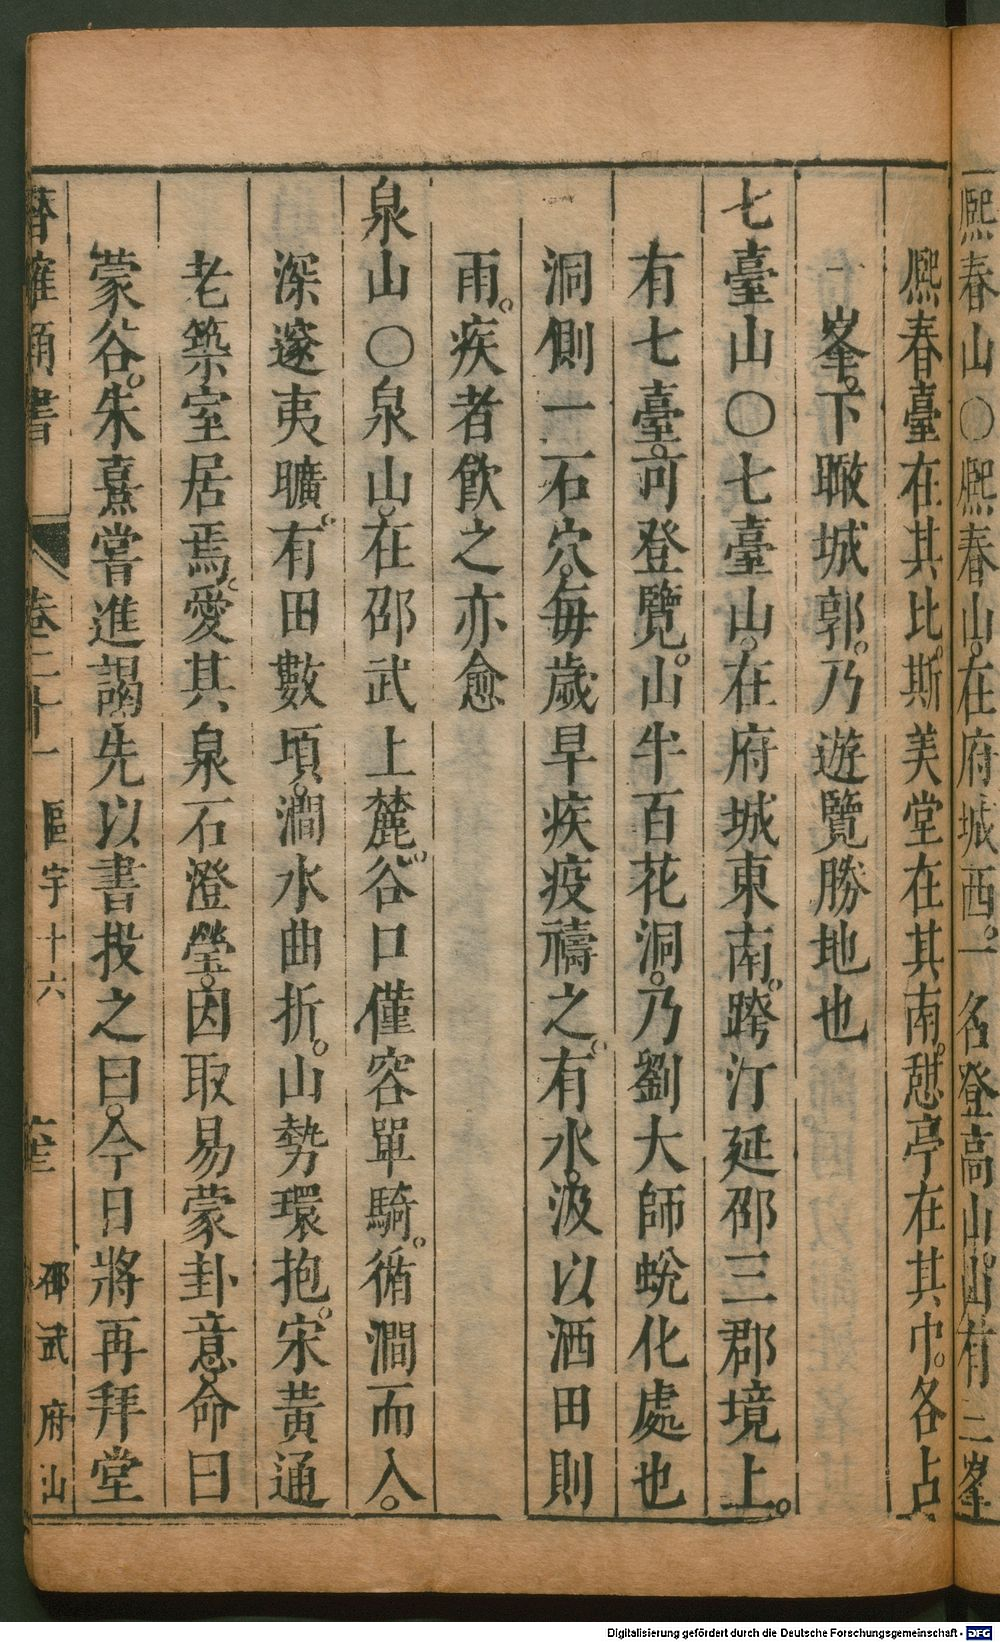 熈春山○熈春山在府城西一名登高山山有三峯
熈春臺在其北斯美堂在其南憇亭在其中各占
一峯下瞰城郭乃遊覽勝地也
七臺山○七臺山在府城東南跨汀延邵三郡境上
有七臺可登覽山半百花洞乃劉大師蛻化處也
洞側一石穴每歲旱疾疫禱之有水汲以洒田則
雨疾者飲之亦愈
泉山○泉山在邵武上麓谷口僅容單騎循澗而入
深邃夷曠有田數頃澗水曲折山勢環抱宋黃通
老築室居焉愛其泉石澄瑩因取易蒙卦意命曰
蒙谷朱熹嘗進謁先以書投之曰今日將再拜堂
卷二十一 區宇十六 邵武府山
Digitalisierung gefördert durch die Deutsche Forschungsgemeinschaft - DFG